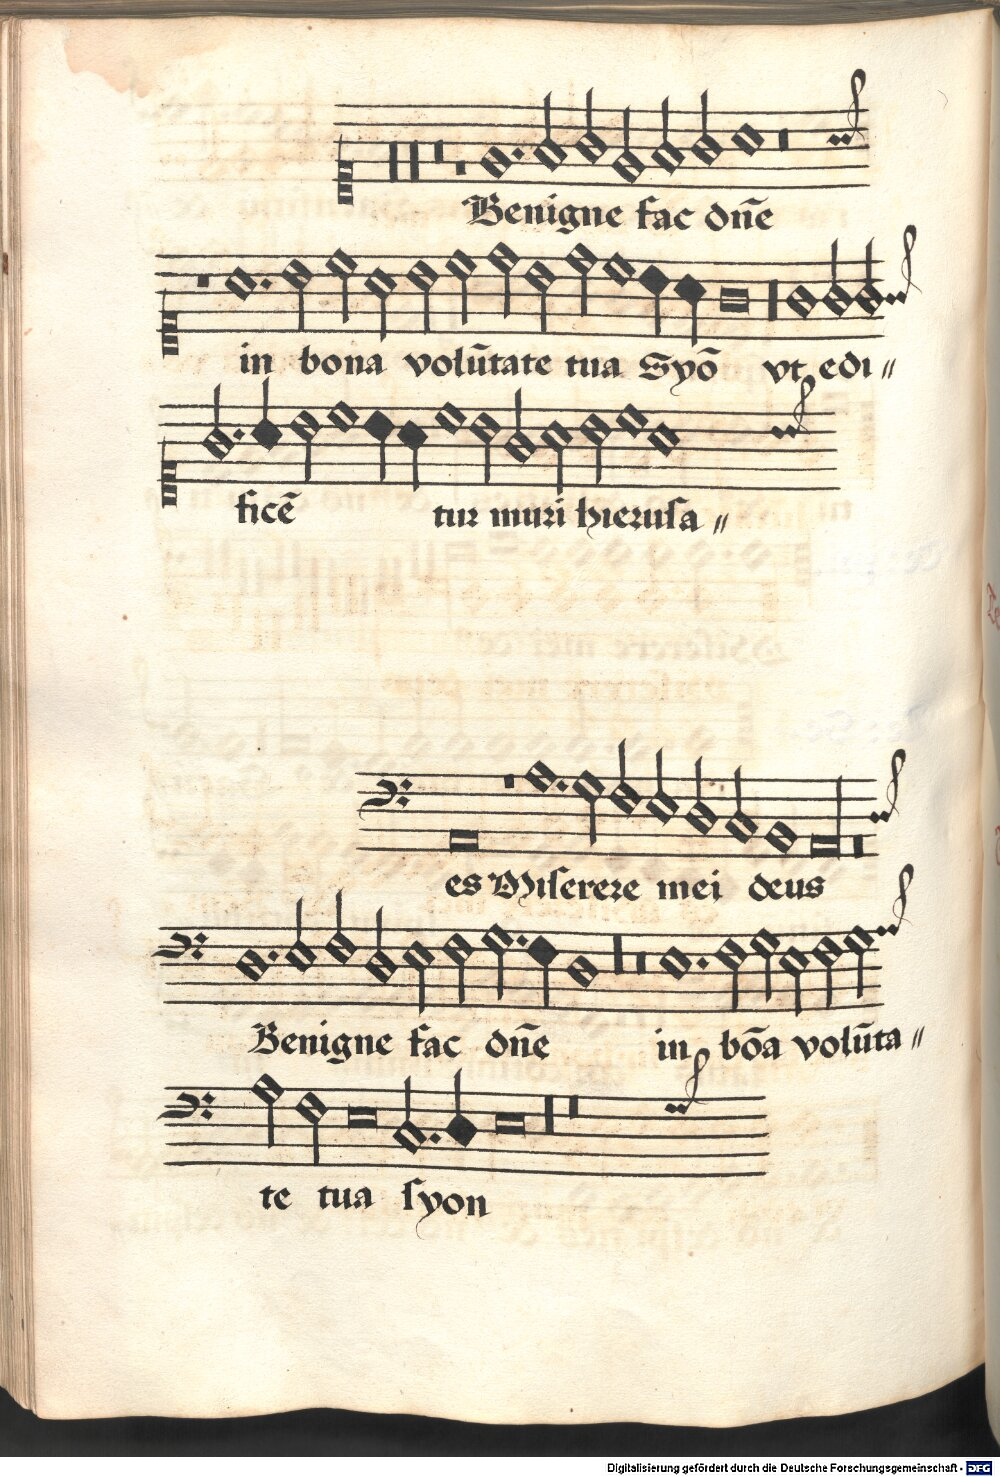 Benigne fac dn̄e
in bona volūtate tua Syō vt edi〃
ficē tur muri hieruſa〃
es Miſerere mei deus
Benigne fac dn̄e in bōa volūta〃
te tua ſyon
Digitalisierung gefördert durch die Deutsche Forschungsgemeinschaft - DFG